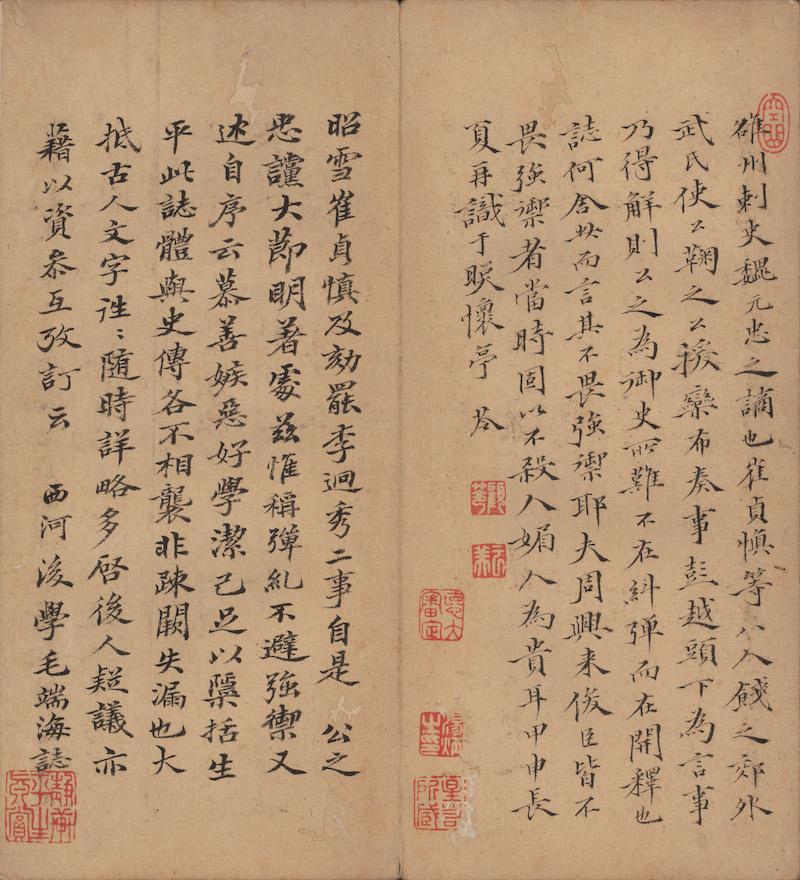 雒州刺史魏元忠之謫也崔貞慎等八人餞之郊外
武氏使公鞠之公援欒布奏事彭越頭下為言事
乃得解則公之為御史所難不在糾彈而在開釋也
誌何舍此而言其不畏強禦耶夫周興来俊臣皆不
畏強禦者當時固以不殺人媚人為貴耳甲申長
夏再識于暎懷亭 苓
昭雪崔貞慎及劾罷李迥秀二事自是 公之
忠讜大節明著處茲惟稱彈糺不避強禦又
述自序云慕善嫉惡好學潔己足以櫽括生
平此誌體與史傳各不相襲非疎闕失漏也大
抵古人文字徃〻隨時詳略多啓後人疑議亦
藉以資叅互攷訂云 西河後學毛端海誌